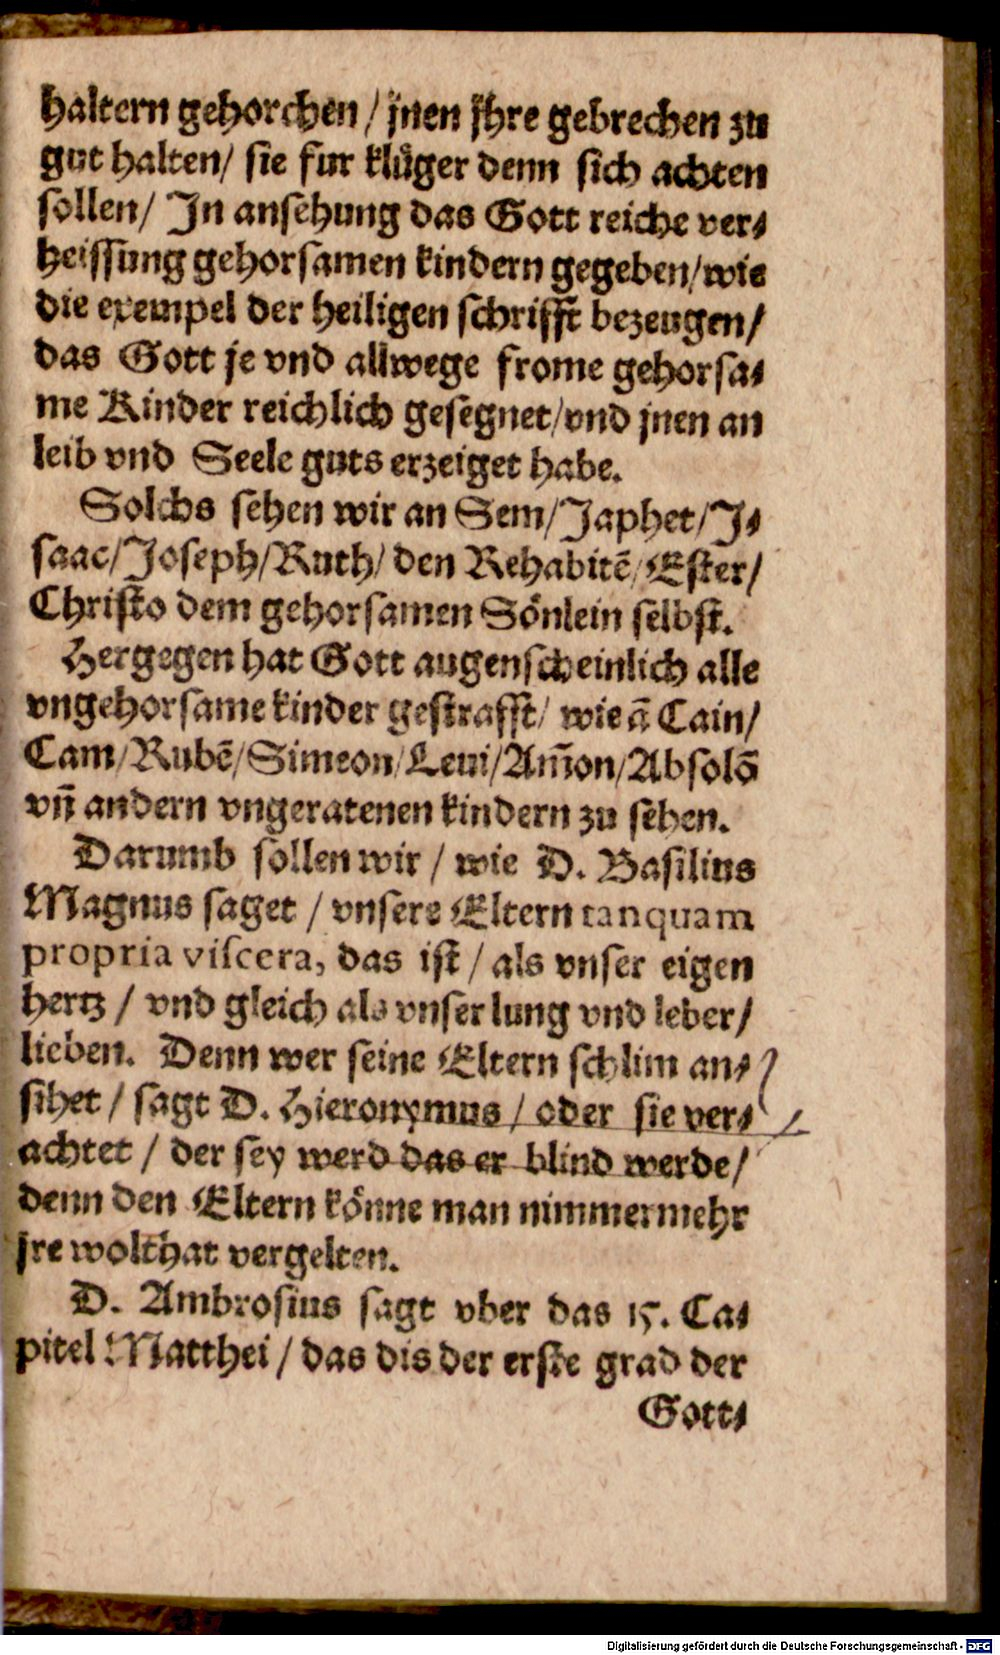 haltern gehorchen / jnen jhre gebrechen zu
gut halten/ sie fur klüger denn sich achten
sollen/ In ansehung das Gott reiche ver⸗
heissung gehorsamen kindern gegeben/ wie
die exempel der heiligen schrifft bezeugen/
das Gott je vnd allwege frome gehorsa⸗
me Kinder reichlich gesegnet/ vnd jnen an
leib vnd Seele guts erzeiget habe.
Solchs sehen wir an Sem/ Japhet/ I⸗
saac/ Joseph/ Ruth/ den Rehabitē/ Ester/
Christo dem gehorsamen Sönlein selbst.
Hergegen hat Gott augenscheinlich alle
vngehorsame kinder gestrafft/ wie ā Cain/
Cam/ Rubē/ Simeon/ Leui/ Am̄on/ Absolō
vn̄ andern vngeratenen kindern zu sehen.
Darumb sollen wir / wie D. Basilius
Magnus saget / vnsere Eltern tanquam
propria viscera, das ist / als vnser eigen
hertz / vnd gleich als vnser lung vnd leber/
lieben. Denn wer seine Eltern schlim an⸗
sihet / sagt D. Hieronymus / oder sie ver⸗
achtet / der sey werd das er blind werde/
denn den Eltern könne man nimmermehr
jre wolthat vergelten.
D. Ambrosius sagt vber das 15. Ca⸗
pitel Matthei / das dis der erste grad der
Gott⸗
Digitalisierung gefördert durch die Deutsche Forschungsgemeinschaft - DFG